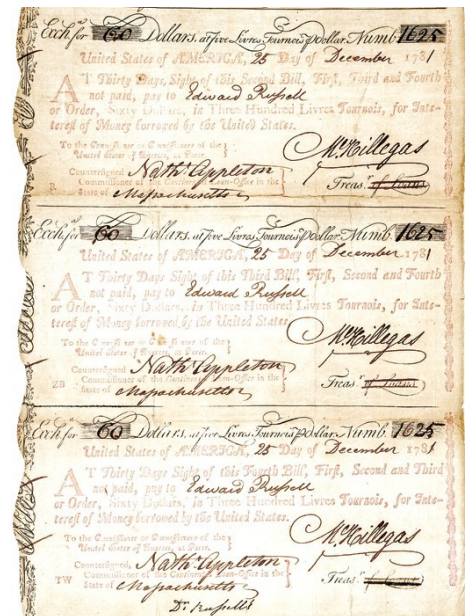 Exch.ᵃ for 60 Dollars. at five Livres Tournois ⅌ Dollar. Numb. 1625
United States of AMERICA, 25 Day of December 1781
AT Thirty Days Sight of this Second Bill, First, Third and Fourth
not paid, pay to Edward Russell
or Order, Sixty Dollars, in Three Hundred Livres Tournois, for Inte-
rest of Money borrowed by the United States.
To the Commissioner or Commissioners of the
United States of America, at Paris.
M. Hillegas
Countersigned, Nath. Appleton
Commissioner of the Continental Loan-Office in the
Treas.ʳ of Loans
State of Massachusetts
Exch.ᵃ for 60 Dollars. at five Livres Tournois ⅌ Dollar. Numb. 1625
United States of AMERICA, 25 Day of December 1781
AT Thirty Days Sight of this Third Bill, First, Second and Fourth
not paid, pay to Edward Russell
or Order, Sixty Dollars, in Three Hundred Livres Tournois, for Inte-
rest of Money borrowed by the United States.
To the Commissioner or Commissioners of the
United States of America, at Paris.
M. Hillegas
Countersigned Nath. Appleton
Commissioner of the Continental Loan-Office in the
Treas.ʳ of Loans
ZB State of Massachusetts
Exch.ᵃ for 60 Dollars. at five Livres Tournois ⅌ Dollar. Numb. 1625
United States of AMERICA, 25 Day of December 1781
AT Thirty Days Sight of this Fourth Bill, First, Second and Third
not paid, pay to Edward Russell
or Order, Sixty Dollars, in Three Hundred Livres Tournois, for Inte-
rest of Money borrowed by the United States.
To the Commissioner or Commissioners of the
United States of America, at Paris.
M. Hillegas
Countersigned, Nath. Appleton
Commissioner of the Continental Loan-Office in the
Treas.ʳ
TW State of Massachusetts
Dr. Russell